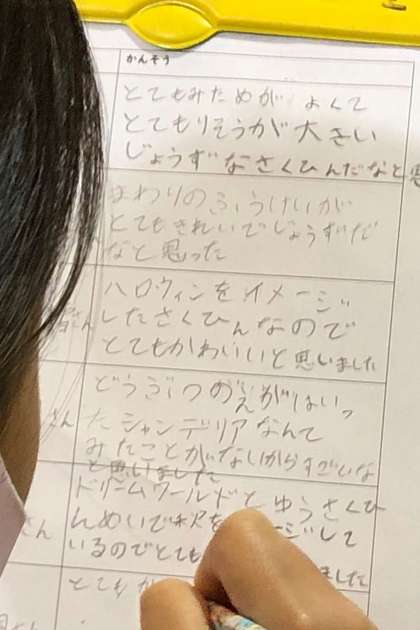 かんそう
とてもみためが よくて
とてもりそうが大きい
じょうずなさくひんだなと思
まわりのふうけいが
とてもきれいでじょうずだ
なと思った
ハロウィンをイメージ
したさくひんなので
とてもかわいいと思いました
さん
どうぶつのえがはいっ
たシャンデリアなんて
みたことがないからすごいな
と思いました
さん
ドリームワールドとゆうさくひ
んめいで ージして
いるのでとても ました
さん
とても